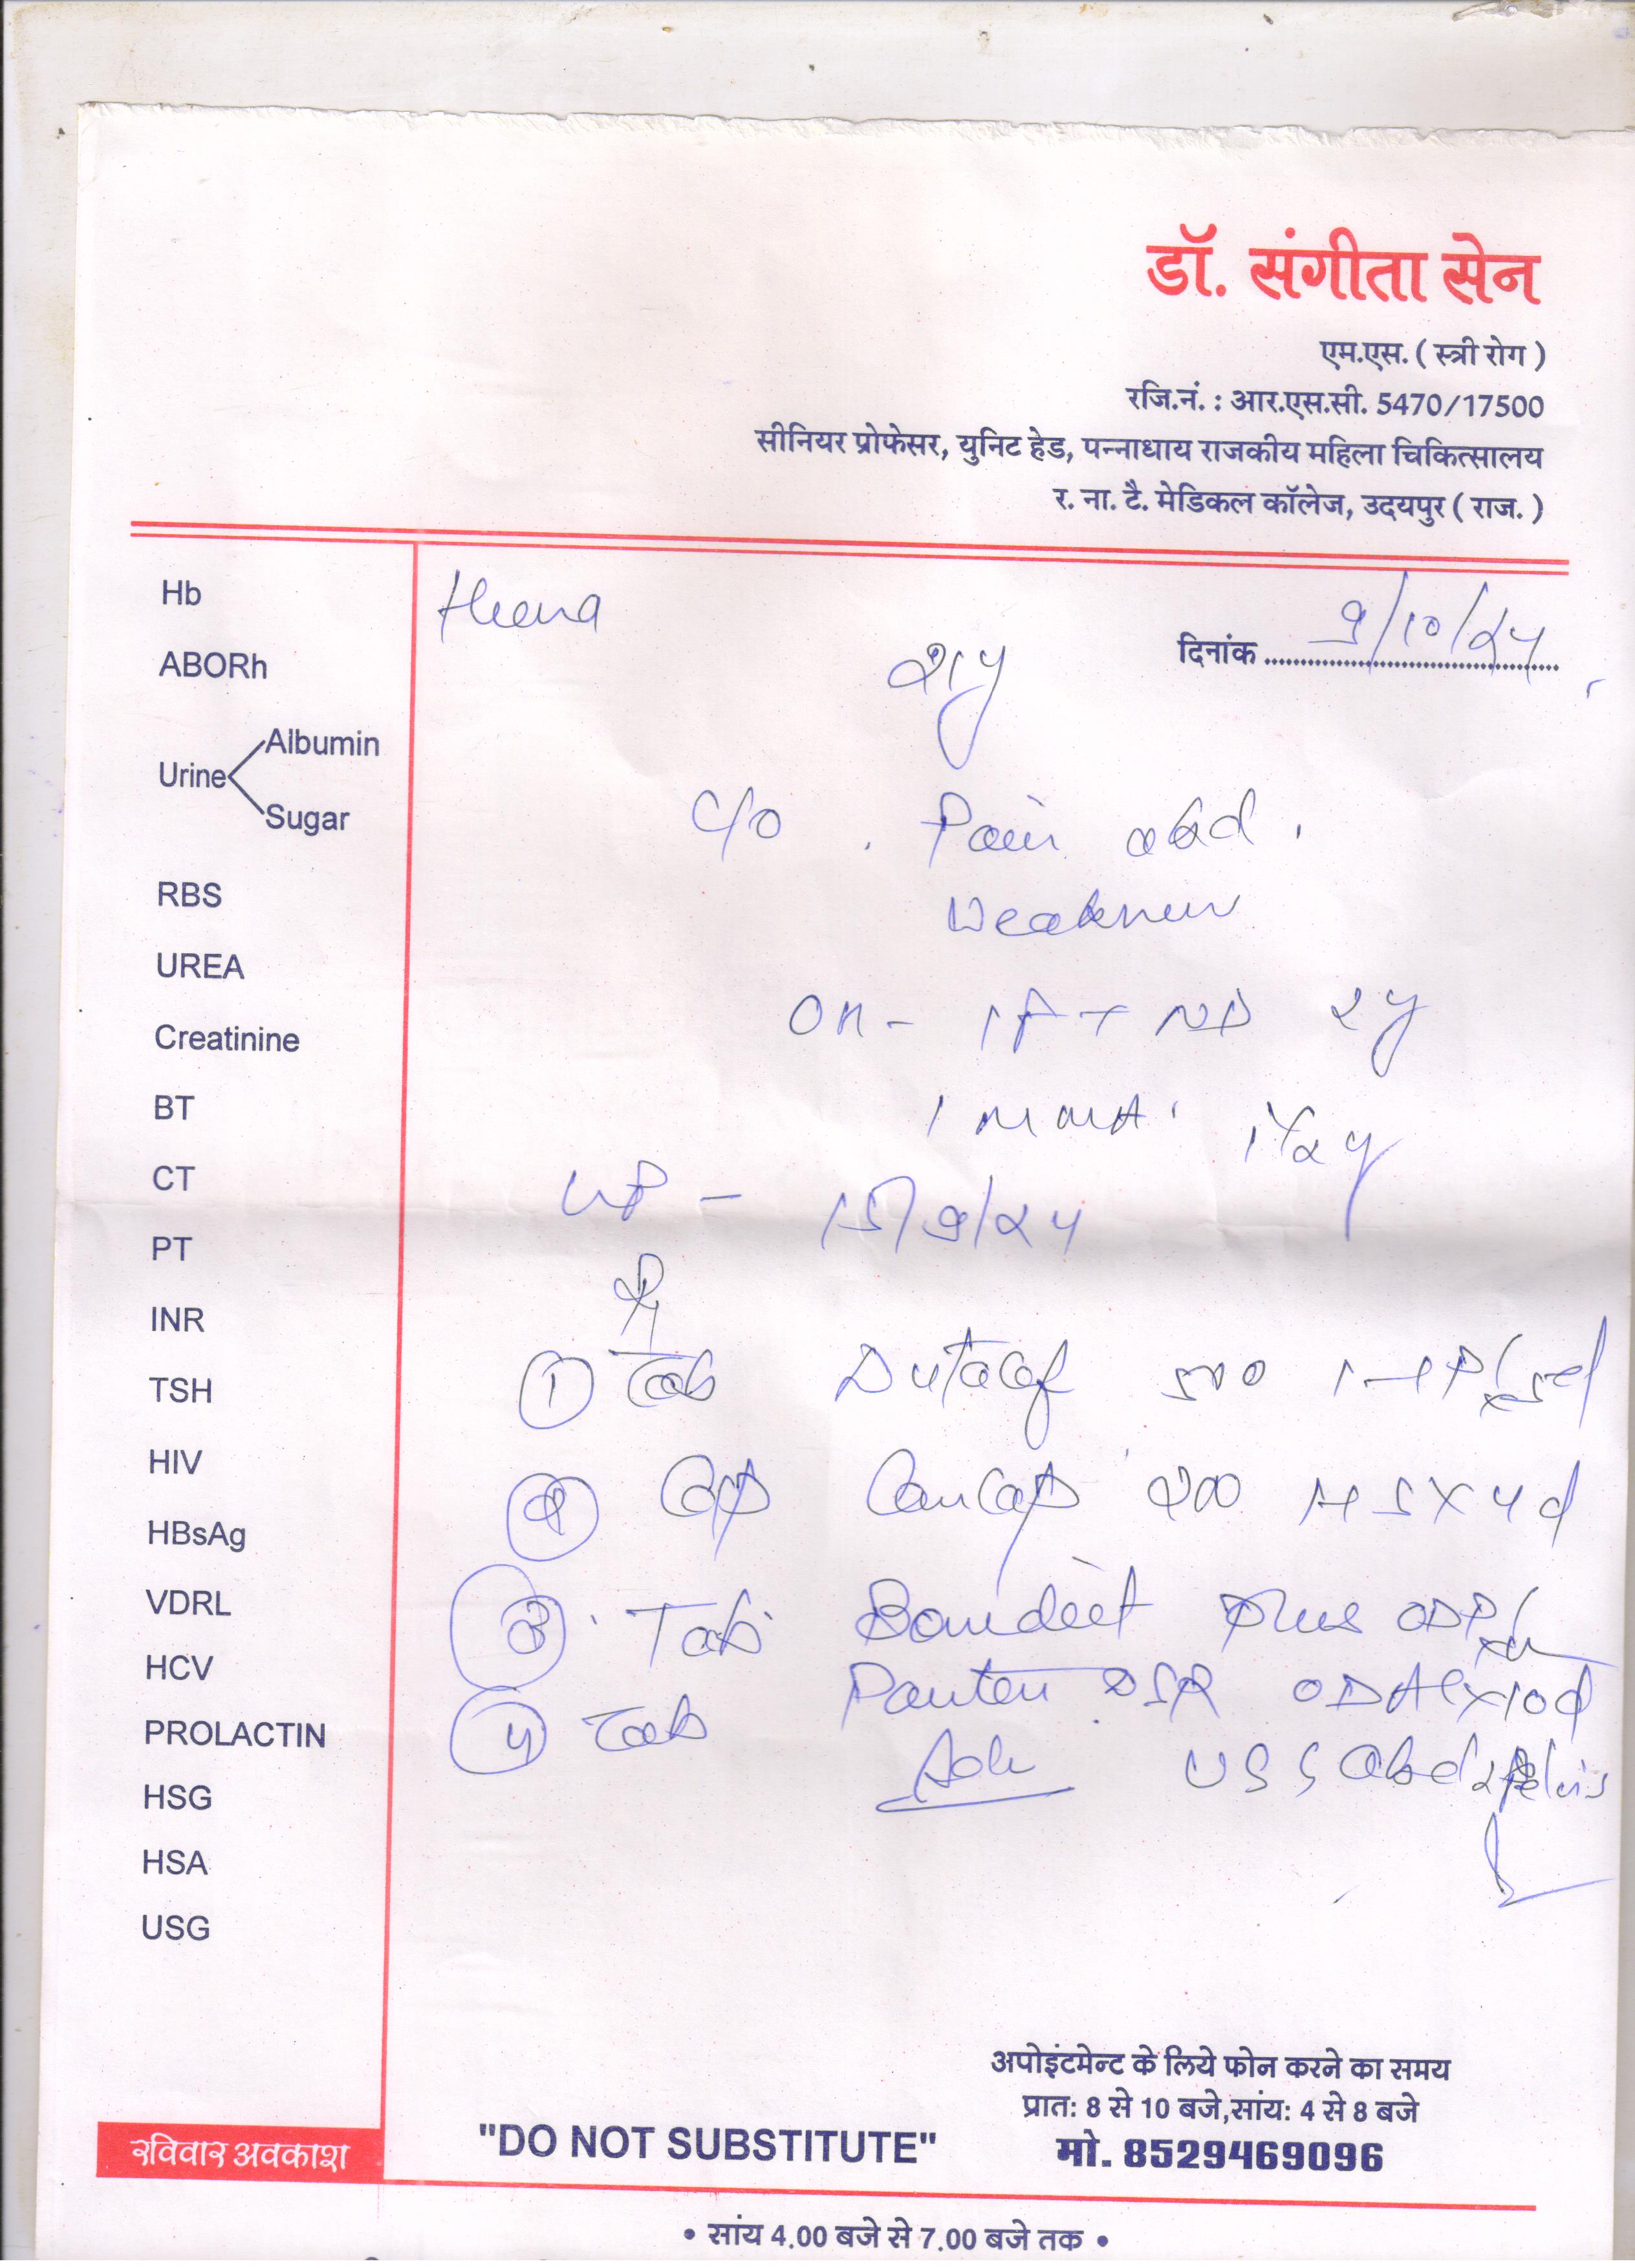 डॉ. संगीता सेन
एम.एस. ( स्त्री रोग )
रजि.नं. : आर.एस.सी. 5470/17500
सीनियर प्रोफेसर, युनिट हेड, पन्नाधाय राजकीय महिला चिकित्सालय
र. ना. टै. मेडिकल कॉलेज, उदयपुर ( राज. )
Heena
दिनांक 9/10/24
C/O . Pain abd.
Weakness
OH - 1F T ND 2y
1 M MA. 1½y
LMP - 15/9/24
Rx
① Tab 500
② Cap Cancap 200 HS x 4d
③ Tab Plus OD
④ Tab DSR OD x 10d
Adv USG abd & Pelvis
Hb
ABORh
Urine
Albumin
Sugar
RBS
UREA
Creatinine
BT
CT
PT
INR
TSH
HIV
HBsAg
VDRL
HCV
PROLACTIN
HSG
HSA
USG
अपोइंटमेन्ट के लिये फोन करने का समय
प्रात: 8 से 10 बजे,सांय: 4 से 8 बजे
मो. 8529469096
"DO NOT SUBSTITUTE"
रविवार अवकाश
• सांय 4.00 बजे से 7.00 बजे तक •